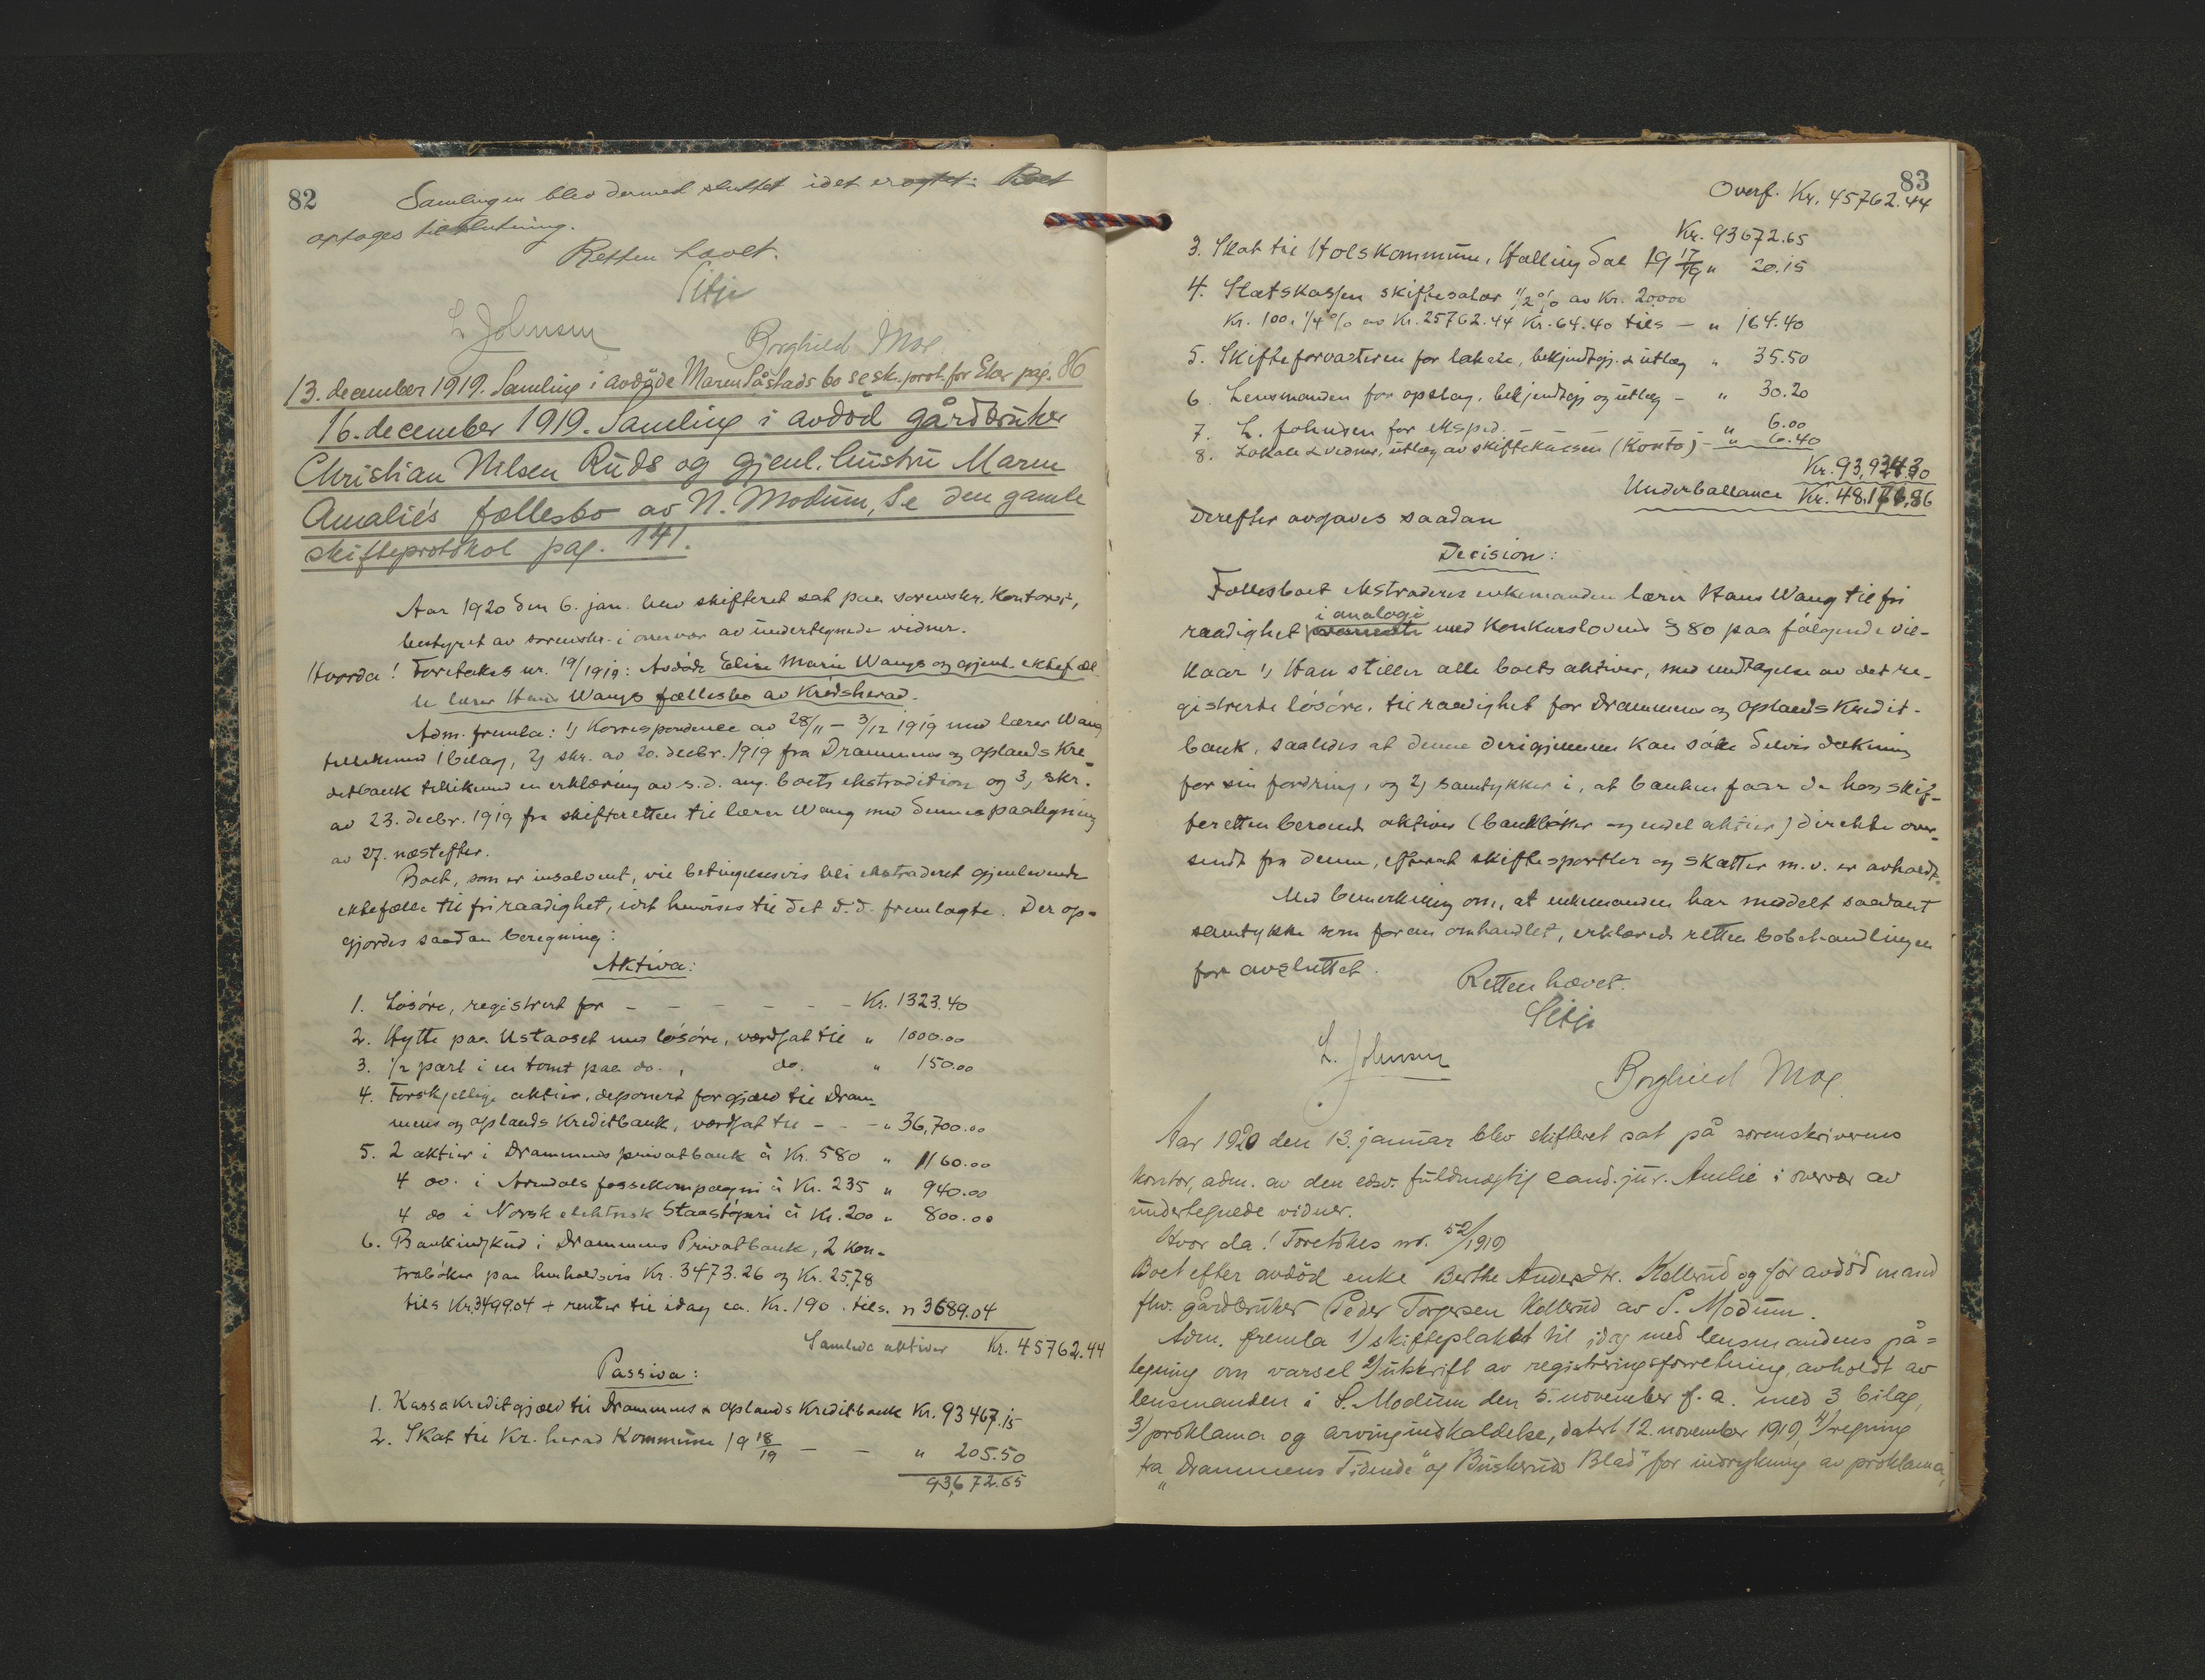 82
Samlingen blev dermed sluttet idet eragtet: Boet
optages til slutning.
Retten hævet.
L Johnsen
Borghild Moe
13. december 1919. Samling i avdøde Maren Såstads bo se sk. prot. for Eker pag. 86
16. december 1919. Samling i avdöd gårdbruker
Christian Nilsen Ruds og gjenl. hustru Maren
Amalie's fællesbo av N. Modum, Se den gamle
skifteprotokol pag. 141.
Aar 1920 den 6. jan. blev skifteret sat paa sorenskr. Kontoret,
bestyret av sorenskr. i overvær av undertegnede vidner.
Hvorda! Foretokes nr. 19/1919: Avdöde Elise Marie Wangs og gjenl. ektefæl-
le lærer Hans Wangs fællesbo av Krødsherad.
Adm. fremla: 1) Korrespondence av 28/11 - 3/12 1919 med lærer Wang
tillikemed 1 bilag, 2) skr. av 20. decbr. 1919 fra Drammens og Oplands Kre-
ditbank tillikemed en erklæring av s.d. ang. boets ekstradition og 3, skr.
av 23. decbr. 1919 fra skifteretten til lærer Wang med dennes paategning
av 27. næstefter.
Boet, som er insolvent, vil betingelsesvis bli ekstraderet gjenlevende
ektefælle til fri raadighet, idet henvises til det d.d. fremlagte. Der op-
gjordes saadan beregning:
Aktiva:
1. Løsöre, registrert for - - - - - - Kr. 1323.40
2. Hytte paa Ustaoset med løsöre, værdsat til " 1000.00
3. 1/2 part i en tomt paa do. , do. " 150.00
4. Forskjellige aktier, deponert for gjæld til Dram-
mens og Oplands Kreditbank, værdsat til - - - " 36,700.00
5. 2 aktier i Drammens privatbank à Kr. 580 " 1160.00
4 do. i Arendals fossekompagni à Kr. 235 " 940.00
4 do i Norsk elektrisk Staalstøperi à Kr. 200 " 800.00
6. Bankindskud i Drammens Privatbank, 2 kon-
trabøker paa henholdsvis Kr. 3473.26 og Kr. 25.78
tils Kr. 3499.04 + renter til idag ca. Kr. 190. tils. " 3689.04
Samlede aktiver Kr. 45762.44
Passiva:
1. Kassakreditgjæld til Drammens & Oplands Kreditbank Kr. 93467.15
2. Skat til Kr. herad Kommune 19 18/19 - - " 205.50
93,672.65
83
Overf. Kr. 45762.44
Kr. 93672.65
3. Skat til Hols Kommune, Hallingdal 19 17/19 " 20.15
4. Statskassen skiftesalær 1/2 % av Kr. 20000
Kr. 100, 1/4 % av Kr. 25762.44 Kr. 64.40 tils - " 164.40
5. Skifteforvalteren for lokale, bekjendtgj. & utlæg " 35.50
6. Lensmanden for opslag, bekjendtgj og utlæg - " 30.20
7. L. Johnsen for eksped. - - - " 6.00
8. Lokale & vidner, utlæg av skiftekassen (Konto) - " 6.40
Kr. 93,934.30
Underballance Kr. 48,171.86
Derefter avgaves saadan
Decision:
Fællesboet ekstraderes enkemanden lærer Hans Wang til fri
i analogi
raadighet med Konkurslovens § 80 paa følgende vil-
kaar 1, Han stiller alle boets aktiver, med undtagelse av det re-
gistrerte løsöre, til raadighet for Drammens og Oplands Kredit-
bank, saaledes at denne derigjennem kan søke delvis dækning
for sin fordring, og 2) samtykker i, at banken faar de hos skif-
teretten beroende aktiver (bankbøker og endel aktier) direkte over-
sendt fra denne, efterat skiftesportler og skatter m.v. er avholdt.
Med bemerkning om, at enkemanden har meddelt saadant
samtykke som foran omhandlet, erklæredes retten bobehandlingen
for avsluttet.
Retten hævet.
L. Johnsen
Borghild Moe
Aar 1920 den 13. januar blev skifteret sat på sorenskriverens
kontor, adm. av den edsv. fuldmægtig cand. jur. Amlie i overvær av
undertegnede vidner.
Hvor da! Foretokes nr. 52/1919
Boet efter avdöd enke Berthe Andersdtr. Kollerud og för avdöd mand
fhv. gårdbruker Peder Torgersen Kollerud av S. Modum.
Adm. fremla 1) skifteplakat til idag med lensmandens på=
tegning om varsel 2) utskrift av registreringsforretning, avholdt av
lensmanden i S. Modum den 5. november f. a. med 3 bilag,
3) proklama og arvingindkaldelse, datert 12. november 1919, 4) regning
fra "Drammens Tidende" og "Buskeruds Blad" for indrykning av proklama,